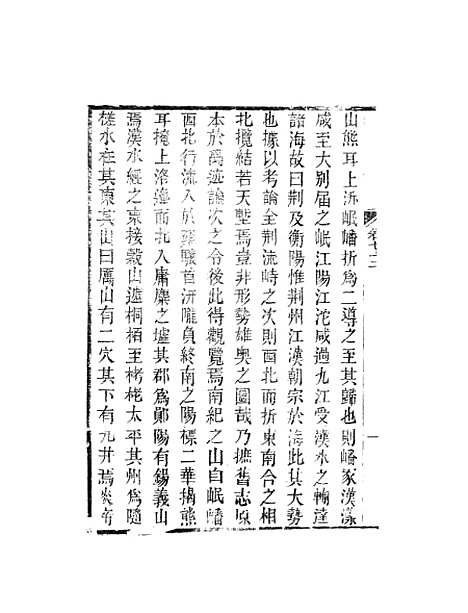 卷七十二
一
山熊耳上泝岷嶓折為二導之至其歸也則嶓冢漢漾
咸至大别屆之岷江陽江沱咸過九江受漢水之輸達
諸海故曰荆及衡陽惟荆州江漢朝宗於海此其大勢
也據以考論全荆流峙之次則西北而折東南合之相
北攬結若天塹焉豈非形勢雄奥之圖哉乃摭舊志原
本於禹迹論次之令後此得觀覽焉南紀之山自岷嶓
西北行流入於雍驤首汧隴負終南之陽標二華揭熊
耳掩上洛遵而北入庸麇之墟其郡為鄖陽有錫義山
焉漢水經之東接穀山遮桐栢至栲栳太平其州為隨
㵐水在其東其山曰厲山有二穴其下有九井焉炎帝